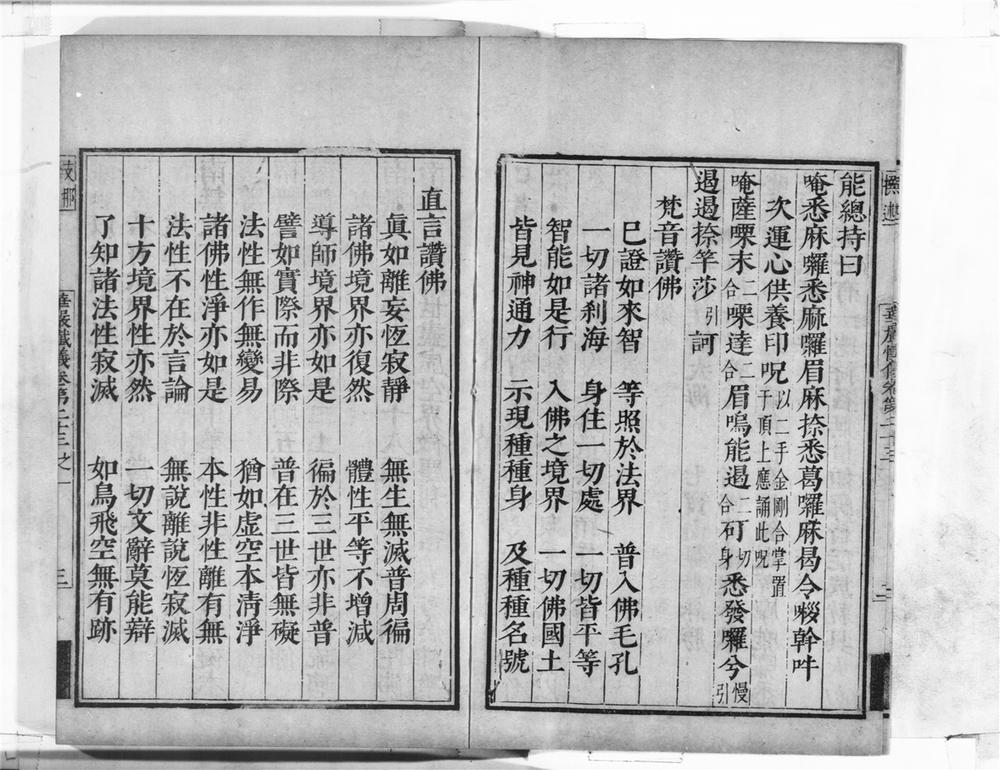 能總持曰
唵悉麻囉悉麻囉眉麻捺悉葛囉麻曷令𠸪幹吽
次運心供養印呪以二手金剛合掌置于頂上應誦此呪
唵薩㗚末二合㗚達二合眉嗚能遏二合
悉發囉兮
遏遏捺竿莎引訶
梵音讚佛
巳證如來智 等照於法界 普入佛毛孔
一切諸刹海 身住一切處 一切皆平等
智能如是行 入佛之境界 一切佛國土
皆見神通力 示現種種身 及種種名號
直言讚佛
眞如離妄恆寂靜 無生無滅普周徧
諸佛境界亦復然 體性平等不增減
導師境界亦如是 徧於三世亦非普
譬如實際而非際 普在三世皆無礙
法性無作無變易 猶如虛空本清淨
諸佛性淨亦如是 本性非性離有無
法性不在於言論 無說離說恆寂滅
十方境界性亦然 一切文辭莫能辯
了知諸法性寂滅 如鳥飛空無有跡
華嚴懺儀卷第二十三之一
三